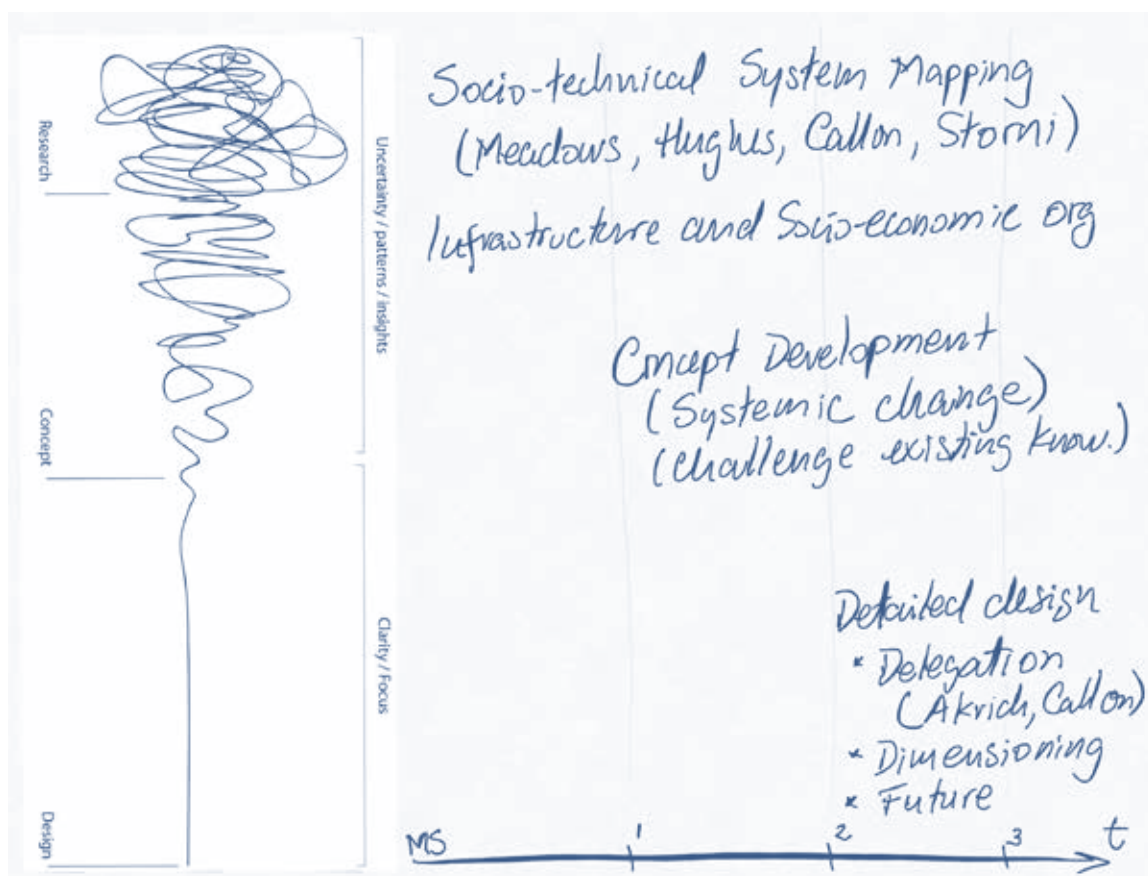 Research
Concept
Design
Uncertainty / patterns / insights
Clarity / Focus
Socio-technical System Mapping
(Meadows, Hughes, Callon, Storni)
Infrastructure and Socio-economic org
Concept Development
(Systemic change)
(Challenge existing know.)
Detailed design
* Delegation
(Akrich, Callon)
* Dimensioning
* Future
MS 1 2 3 t